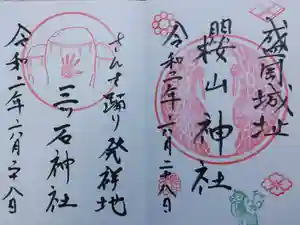 盛岡城址
櫻山神社
令和二年六月二十八日
さんさ踊り発祥地
三ッ石神社
令和二年六月二十八日